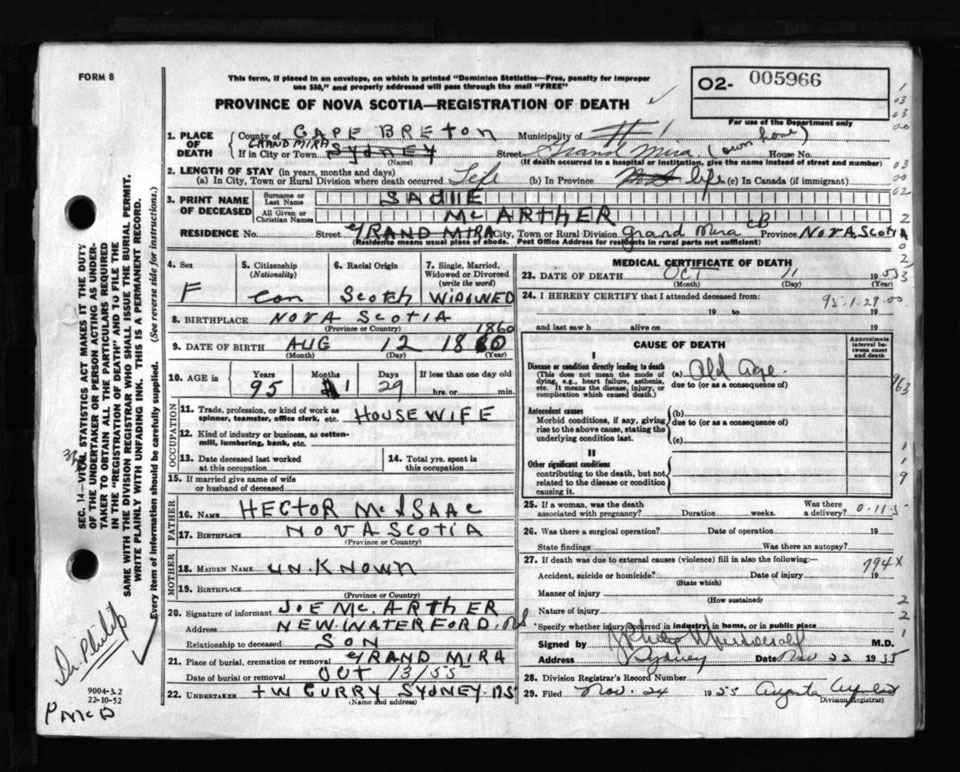 FORM B
This form, if placed in an envelope, on which is printed "Dominion Statistics—Free, penalty for improper
use $50," and properly addressed will pass through the mail "FREE"
02- 005966
PROVINCE OF NOVA SCOTIA—REGISTRATION OF DEATH
For use of the Department only
1. PLACE OF DEATH { County of CAPE BRETON Municipality of
GRAND MIRA
If in City or Town SYDNEY Street Grand Mira (own home) House No.
(Name) (If death occurred in a hospital or institution, give the name instead of street and number)
2. LENGTH OF STAY (in years, months and days)
(a) In City, Town or Rural Division where death occurred Life (b) In Province life (c) In Canada (if immigrant)
3. PRINT NAME OF DECEASED { Surname or Last Name SADIE
All Given or Christian Names MC ARTHER
RESIDENCE No. Street GRAND MIRA City, Town or Rural Division Grand Mira CB Province NOVA SCOTIA
(Residence means usual place of abode. Post Office Address for residents in rural parts not sufficient)
4. Sex F
5. Citizenship (Nationality) Can
6. Racial Origin Scotch
7. Single, Married, Widowed or Divorced (write the word) WIDOWED
8. BIRTHPLACE NOVA SCOTIA
(Province or Country)
1860
9. DATE OF BIRTH AUG 12 1860
(Month) (Day) (Year)
10. AGE in Years Months Days If less than one day old
95 1 29 hrs. or min.
OCCUPATION
11. Trade, profession, or kind of work as spinner, teamster, office clerk, etc. HOUSEWIFE
12. Kind of industry or business, as cotton-mill, lumbering, bank, etc.
13. Date deceased last worked at this occupation
14. Total yrs. spent in this occupation
15. If married give name of wife or husband of deceased
FATHER
16. NAME HECTOR McISAAC
17. BIRTHPLACE NOVA SCOTIA
(Province or Country)
MOTHER
18. MAIDEN NAME UNKNOWN
19. BIRTHPLACE
(Province or Country)
20. Signature of informant JOE MC. ARTHER
Address NEW WATERFORD. NS
Relationship to deceased SON
21. Place of burial, cremation or removal GRAND MIRA
Date of burial or removal OCT 13/55
22. UNDERTAKER TW CURRY SYDNEY. NS
(Name and address)
MEDICAL CERTIFICATE OF DEATH
23. DATE OF DEATH OCT 11 1955
(Month) (Day) (Year)
24. I HEREBY CERTIFY that I attended deceased from:
95-1-29-00
19 to 19
and last saw h alive on 19
CAUSE OF DEATH
Approximate interval between onset and death
I
Disease or condition directly leading to death (a) Old age.
(This does not mean the mode of dying, e.g., heart failure, asthenia, etc. It means the disease, injury, or complication which caused death.)
due to (or as a consequence of)
Antecedent causes
Morbid conditions, if any, giving rise to the above cause, stating the underlying condition last.
(b)
due to (or as a consequence of)
(c)
II
Other significant conditions
contributing to the death, but not related to the disease or condition causing it.
25. If a woman, was the death associated with pregnancy? Duration weeks. Was there a delivery? 0-11 5
26. Was there a surgical operation? Date of operation 19
State findings Was there an autopsy?
27. If death was due to external causes (violence) fill in also the following:— 794 X
Accident, suicide or homicide? Date of injury 19
(State which)
Manner of injury
(How sustained)
Nature of injury
*Specify whether injury occurred in industry, in home, or in public place
Signed by M.D.
Address Sydney Date Nov 22 1955
28. Division Registrar's Record Number
29. Filed Nov. 24 1955
Division Registrar)
SEC. 14—VITAL STATISTICS ACT MAKES IT THE DUTY
OF THE UNDERTAKER OR PERSON ACTING AS UNDER-
TAKER TO OBTAIN ALL THE PARTICULARS REQUIRED
IN THE "REGISTRATION OF DEATH" AND TO FILE THE
SAME WITH THE DIVISION REGISTRAR WHO SHALL ISSUE THE BURIAL PERMIT.
WRITE PLAINLY WITH UNFADING INK. THIS IS A PERMANENT RECORD.
Every item of information should be carefully supplied. (See reverse side for instructions.)
Dr. Philip
9004-3.2
22-10-52
P McD